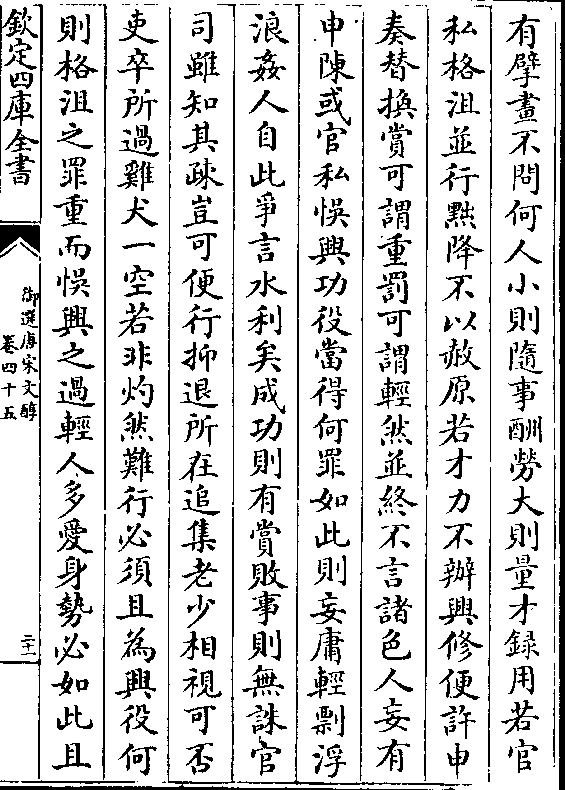 有擘畫不問何人小則隨事酬勞大則量才録用若官
私格沮並行黜降不以赦原若才力不辦興修便許申
奏替換賞可謂重罰可謂輕然並終不言諸色人妄有
申陳或官私悞興功役當得何罪如此則妄庸輕剽浮
浪姦人自此爭言水利矣成功則有賞敗事則無誅官
司雖知其疎豈可便行抑退所在追集老少相視可否
吏卒所過雞犬一空若非灼然難行必須且為興役何
則格沮之罪重而悞興之過輕人多愛身勢必如此且
欽定四庫全書
御選唐宋文醇
卷四十五
二十一